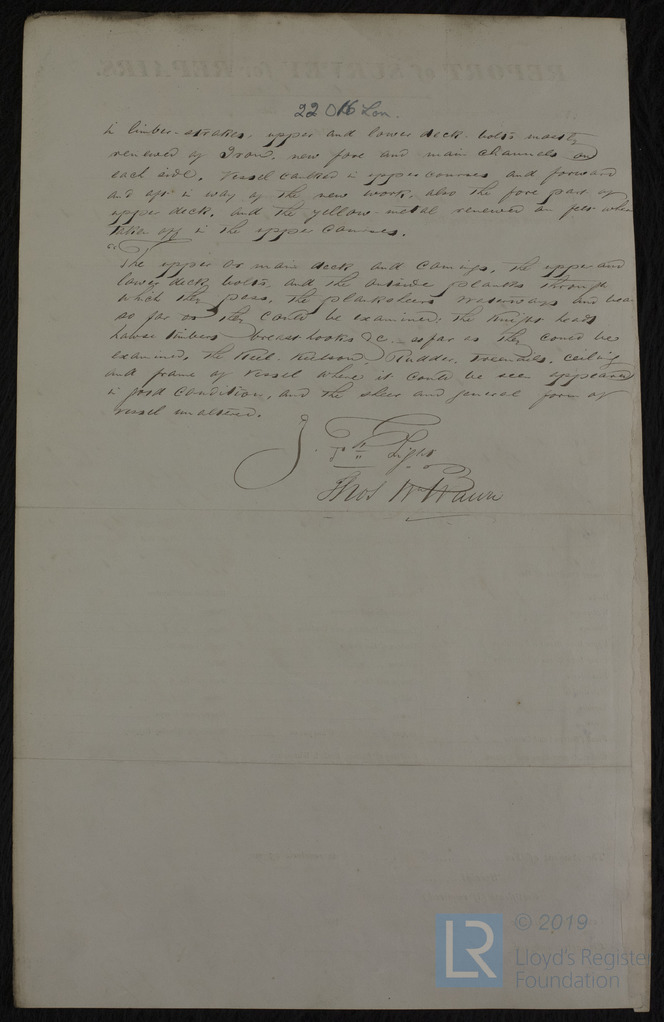 REPORT of SURVEY for REPAIRS.
22 016 Lon.
in limber-strakes, upper and lower deck bolts mostly
renewed of Iron, new fore and main channels on
each side. Vessel caulked in upper courses and forward
and aft in way of the new work, also the fore part of
upper deck, and the yellow metal renewed on felt when
taken off in the upper courses.
The upper or main deck and comings, the upper and
lower deck bolts, and the outside planks through
which they pass, the planksheers waterways and
so far as they could be examined; the Knight heads
hawse timbers breast hooks &c. so far as they could be
examined, the Keel, Keelson, Rudder, treenails, ceiling
and frame of vessel where it could be seen appeared
in good condition, and the sheer and general form of
vessel unaltered.
Light
Thos
© 2019
LR
Lloyd's Register
Foundation